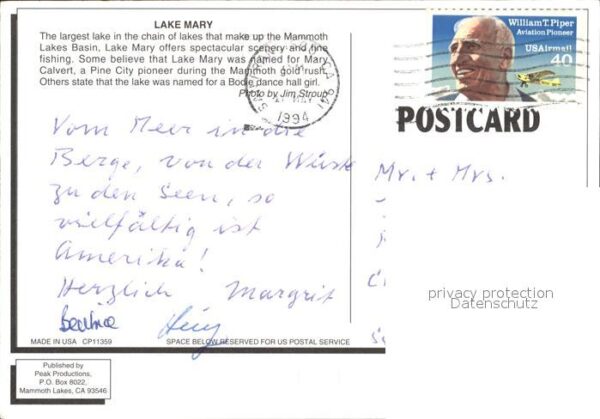 LAKE MARY
The largest lake in the chain of lakes that make up the Mammoth
Lakes Basin, Lake Mary offers spectacular scenery and fine
fishing. Some believe that Lake Mary was named for Mary
Calvert, a Pine City pioneer during the Mammoth gold rush.
Others state that the lake was named for a Bodie dance hall girl.
Photo by Jim Stroup
1994
William T. Piper
Aviation Pioneer
USAirmail
40
POSTCARD
Vom Meer in die
Berge, von der Wüste
zu den Seen, so
vielfältig ist
Amerika!
Herzlich Margrit
Beatrice
Mr. + Mrs.
privacy protection
Datenschutz
MADE IN USA CP11359
SPACE BELOW RESERVED FOR US POSTAL SERVICE
Published by
Peak Productions,
P.O. Box 8022,
Mammoth Lakes, CA 93546